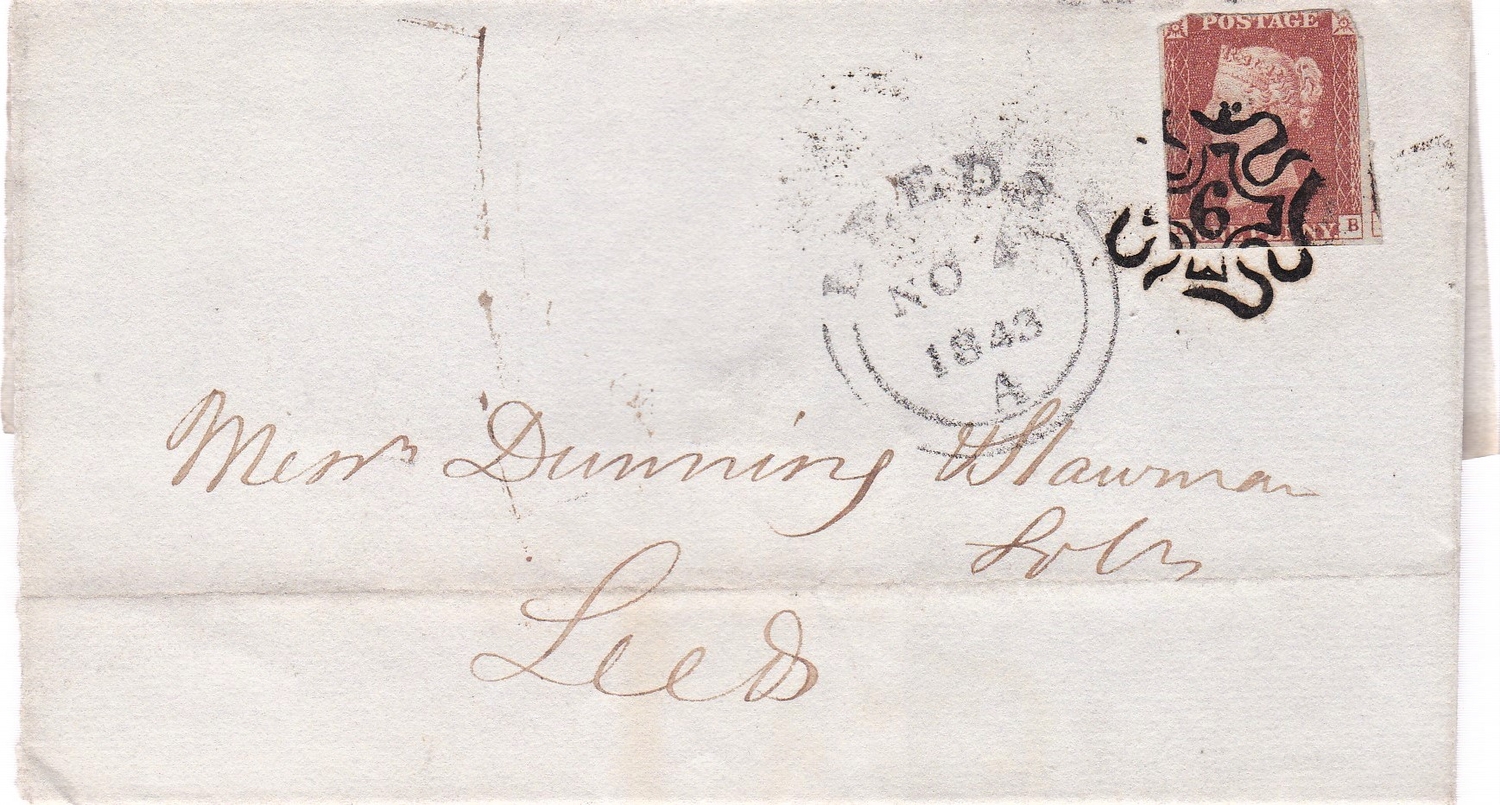 POSTAGE
6
B
LEEDS
NO 4
1843
A
Messrs Dunning & Stawman
Solrs
Leeds